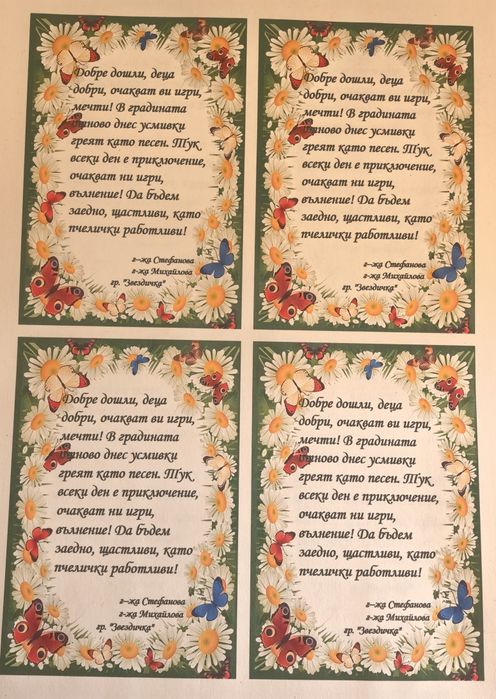 Добре дошли, деца
добри, очакват ви игри,
мечти! В градината
отново днес усмивки
греят като песен. Тук
всеки ден е приключение,
очакват ни игри,
вълнение! Да бъдем
заедно, щастливи, като
пчелички работливи!
г-жа Стефанова
г-жа Михайлова
гр. "Звездичка"
Добре дошли, деца
добри, очакват ви игри,
мечти! В градината
отново днес усмивки
греят като песен. Тук
всеки ден е приключение,
очакват ни игри,
вълнение! Да бъдем
заедно, щастливи, като
пчелички работливи!
г-жа Стефанова
г-жа Михайлова
гр. "Звездичка"
Добре дошли, деца
добри, очакват ви игри,
мечти! В градината
отново днес усмивки
греят като песен. Тук
всеки ден е приключение,
очакват ни игри,
вълнение! Да бъдем
заедно, щастливи, като
пчелички работливи!
г-жа Стефанова
г-жа Михайлова
гр. "Звездичка"
Добре дошли, деца
добри, очакват ви игри,
мечти! В градината
отново днес усмивки
греят като песен. Тук
всеки ден е приключение,
очакват ни игри,
вълнение! Да бъдем
заедно, щастливи, като
пчелички работливи!
г-жа Стефанова
г-жа Михайлова
гр. "Звездичка"